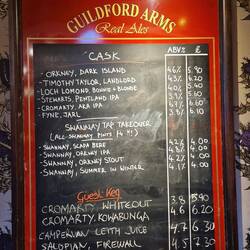 GUILDFORD ARMS
Real Ales
CASK ABV% £
- ORKNEY, DARK ISLAND 4.6% 5.90
- TIMOTHY TAYLOR, LANDLORD 4.3% 6.20
- LOCH LOMOND, BONNIE & BLONDE
- STEWARTS, PENTLAND IPA
- CROMARTY, AKA IPA 6.60
- FYNE, JARL
SWANNAY TAP TAKEOVER
(ALL SWANNAY PINTS £4 !!!)
- SWANNAY, SCAPA BERE 4.2% 4.00
- SWANNAY, ORKNEY IPA 4.8% 4.00
- SWANNAY, ORKNEY STOUT 4.00
- SWANNAY, SUMMER IN WINTER 4.00
Guest Keg
CROMARTY WHITEOUT 3.8 5.90
CROMARTY KOWABUNGA 4.6 6.20
CAMPERVAN LEITH JUICE 4.7 6.30
SALOPIAN, FIREWALL